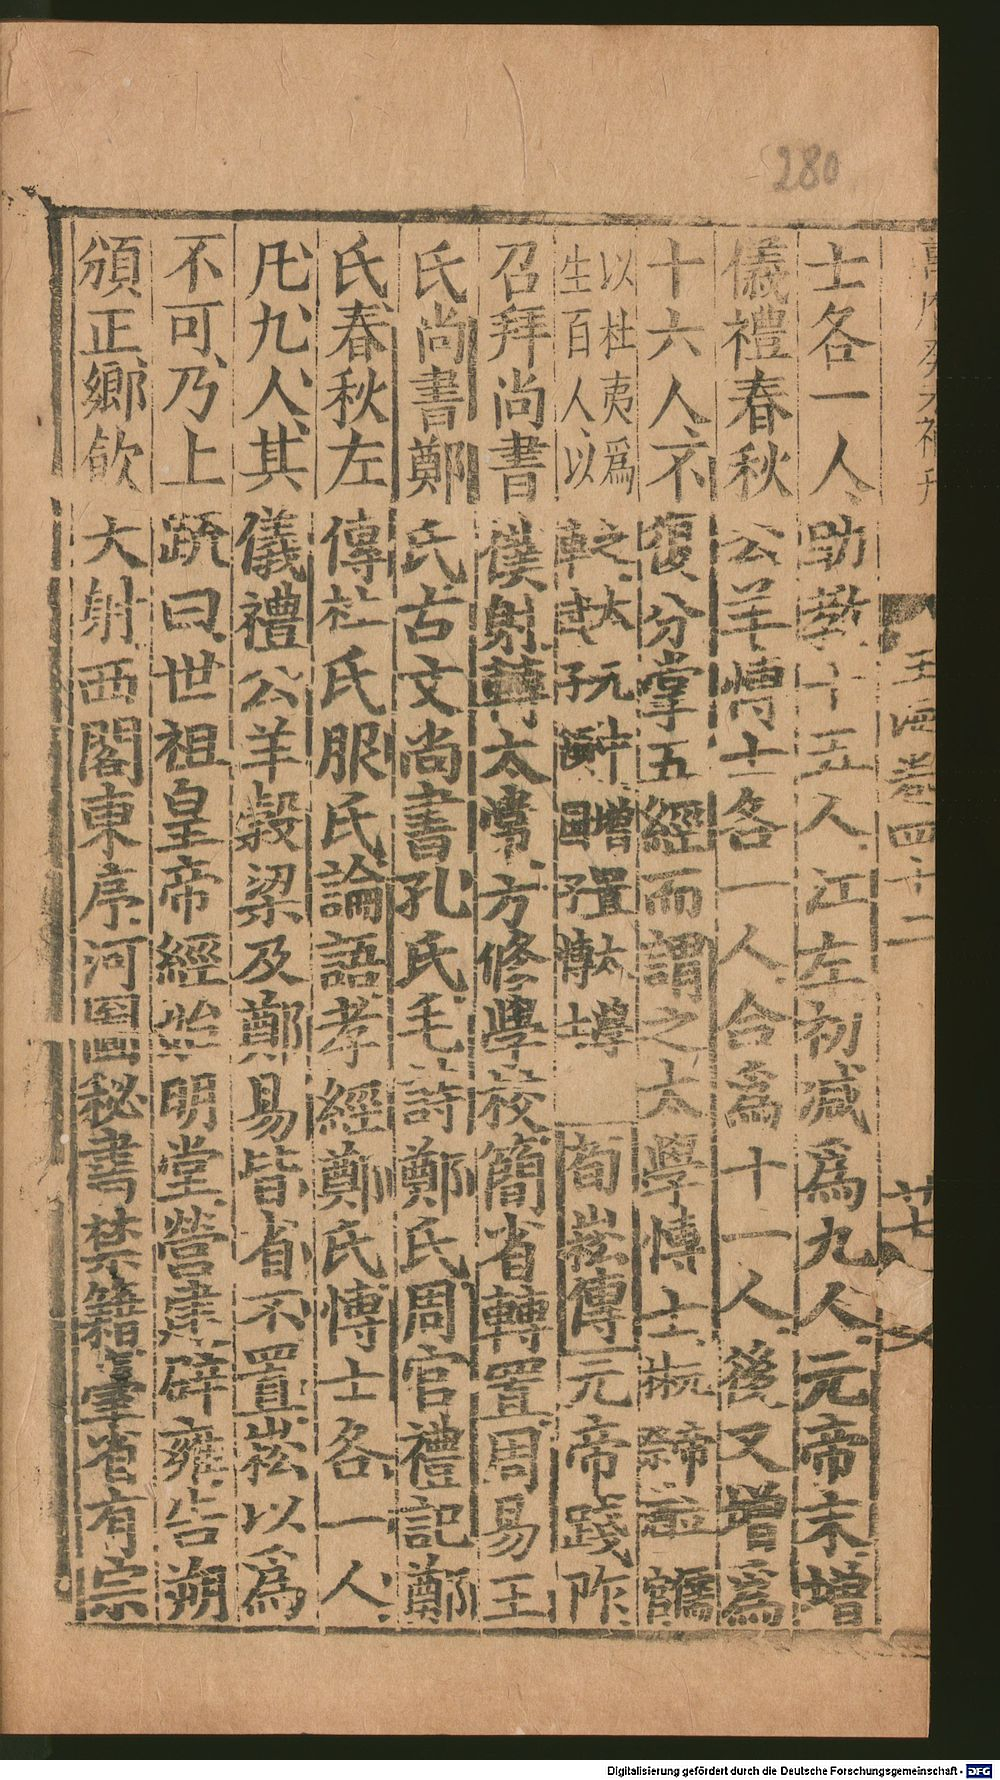 280
玉海卷四十二
廿七
士各一人助教十五人江左初減爲九人元帝末增
儀禮春秋公羊博士各一人合爲十一人後又增爲
十六人不復分掌五經而謂之太學博士
以杜夷爲
生百人以
荀崧傳元帝踐阼
召拜尚書僕射轉太常方修學校簡省博置周易王
氏尚書鄭氏古文尚書孔氏毛詩鄭氏周官禮記鄭
氏春秋左傳杜氏服氏論語孝經鄭氏博士各一人
凡九人其儀禮公羊穀梁及鄭易皆省不置崧以爲
不可乃上䟽曰世祖皇帝經始明堂營建辟雍告朔
頒正鄉飲大射西閣東序河圖秘書禁籍臺省有宗
Digitalisierung gefördert durch die Deutsche Forschungsgemeinschaft - DFG